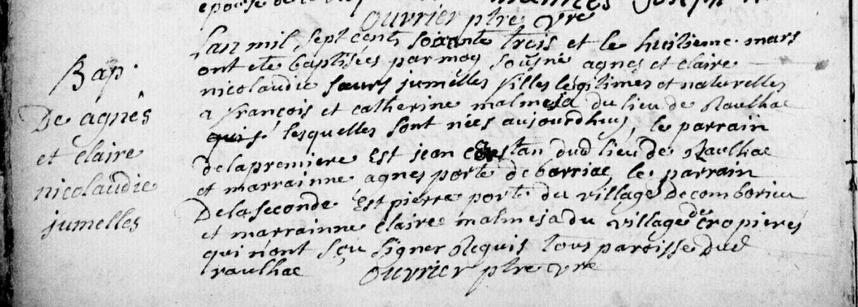 ouvrier ptre vre
Bap.
De agnès
et claire
nicolaudie
jumelles
L'an mil sept cents soixante trois et le huitieme mars
ont ete baptisées par moy sousne agnes et claire
nicolaudie sœurs jumelles filles legitimes et naturelles
a françois et catherine malmesa du lieu de Raulhac
lesquelles sont nées aujourdhuy, le parrain
de la premiere est jean dud lieu de Raulhac
et marrainne agnes porte de barriac, le parrain
De la seconde est pierre porte du village de comborieu
et marrainne claire malmesa du village de cropieres
qui n'ont sçu signer Requis tous paroisse Dud
raulhac ouvrier ptre vre